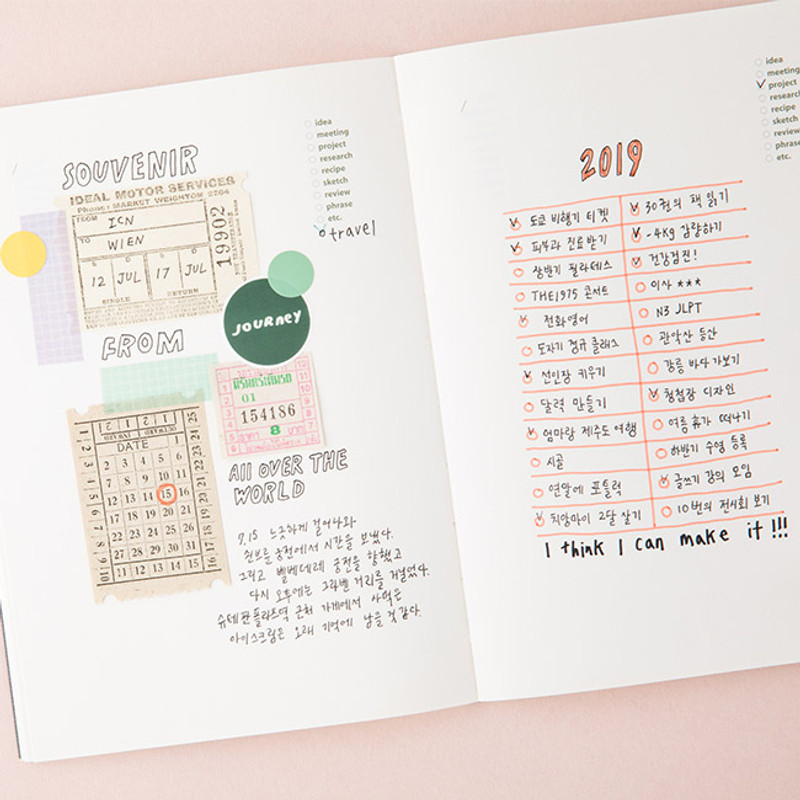 idea
meeting
project
research
recipe
sketch
review
phrase
etc.
travel
SOUVENIR
IDEAL MOTOR SERVICES
Phone: MARKET WEIGHTON 2204
FROM ICN
TO WIEN
12 JUL 17 JUL
SINGLE RETURN
19902
JOURNEY
FROM
01
154186
8
DATE
1
2 3 4 5 6
7 8 9 10 11
12 13 14 15 16
17 18 19 20 21
22 23 24 25 26
27 28 29 30 31
ALL OVER THE
WORLD
7.15 느긋하게 걸어나와
쇤브룬 궁전에서 시간을 보냈다.
그리고 벨베데레 궁전을 향했고
다시 오후에는 그라벤 거리를 걸었다.
슈테판플라츠역 근처 가게에서 사먹은
아이스크림은 오래 기억에 남을 것 같다.
idea
meeting
project
research
recipe
sketch
review
phrase
etc.
2019
도쿄 비행기 티켓
피부과 진료받기
상반기 필라테스
THE1975 콘서트
전화영어
도자기 정규 클래스
선인장 키우기
달력 만들기
엄마랑 제주도 여행
시골
연말에 포틀럭
치앙마이 2달 살기
30권의 책 읽기
-4kg 감량하기
건강검진!
이사 ★★★
N3 JLPT
관악산 등산
강릉 바다 가보기
청첩장 디자인
여름 휴가 떠나기
하반기 수영 등록
글쓰기 강의 모임
10번의 전시회 보기
I think I can make it !!!